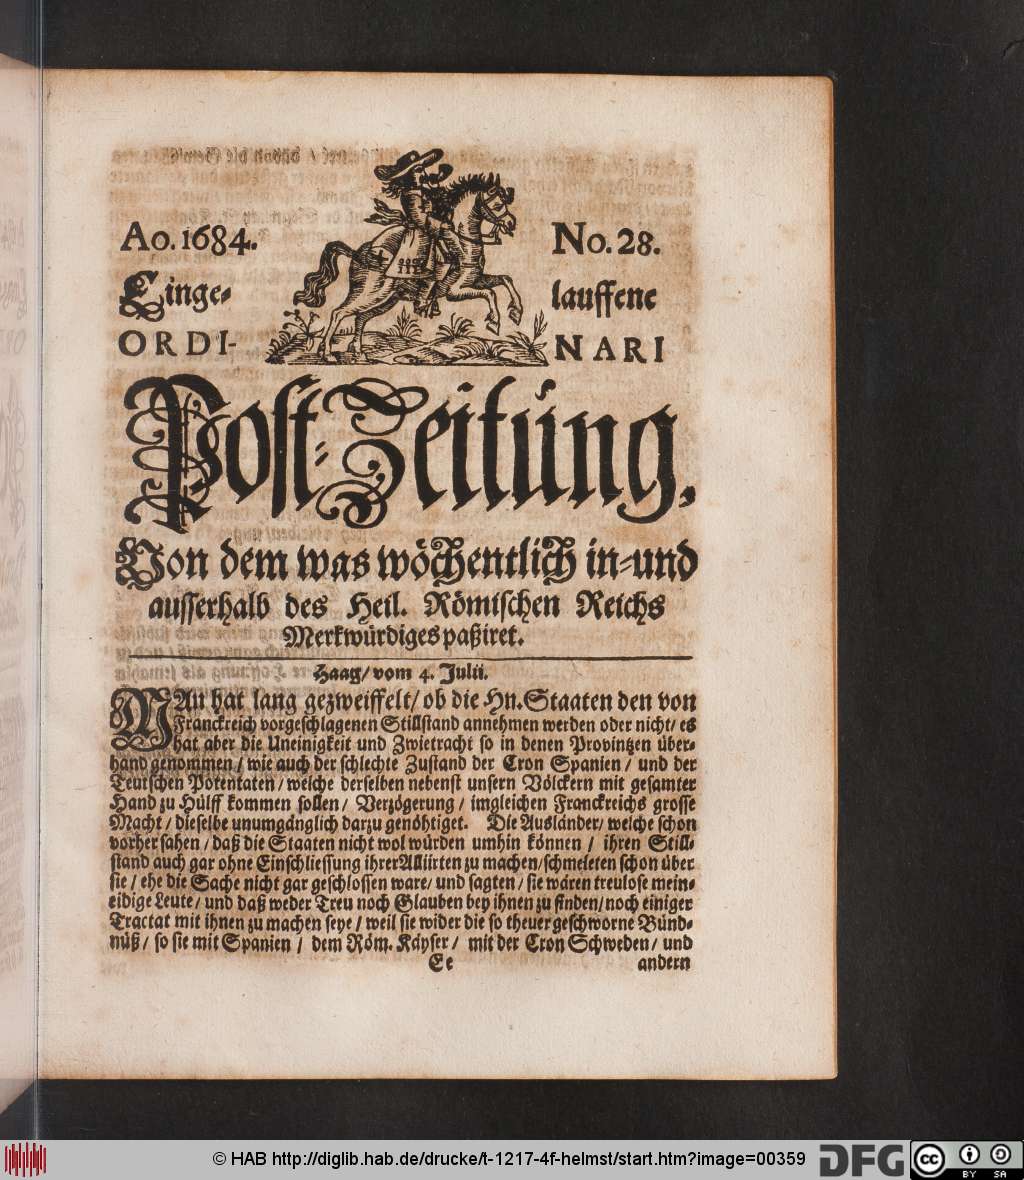 Ao. 1684. No. 28.
Einge- lauffene
ORDI- NARI
Post-Zeitung,
Von dem was wöchentlich in-und
ausserhalb des Heil. Römischen Reichs
Merkwürdiges paßiret.
Haag/ vom 4. Julii.
MAn hat lang gezweiffelt/ ob die Hn. Staaten den von
Franckreich vorgeschlagenen Stillstand annehmen werden oder nicht/ es
hat aber die Uneinigkeit und Zwietracht so in denen Provintzen über-
hand genommen/ wie auch der schlechte Zustand der Cron Spanien/ und der
Teutschen Potentaten/ welche derselben nebenst unsern Völckern mit gesamter
Hand zu Hülff kommen sollen/ Verzögerung/ imgleichen Franckreichs grosse
Macht/ dieselbe unumgänglich darzu genöhtiget. Die Ausländer/ welche schon
vorher sahen/ daß die Staaten nicht wol würden umhin können/ ihren Still-
stand auch gar ohne Einschliessung ihrer Alliirten zu machen/ schmeleten schon über
sie/ ehe die Sache nicht gar geschlossen ware/ und sagten/ sie wären treulose mein-
eidige Leute/ und daß weder Treu noch Glauben bey ihnen zu finden/ noch einiger
Tractat mit ihnen zu machen seye/ weil sie wider die so theuer geschworne Bünd-
nüß/ so sie mit Spanien/ dem Röm. Käyser/ mit der Cron Schweden/ und
Ee andern
© HAB http://diglib.hab.de/drucke/t-1217-4f-helmst/start.htm?image=00359
DFG
cc BY SA